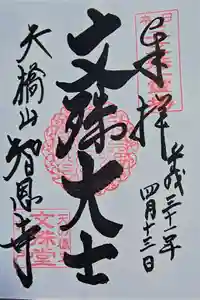 奉拝
平成三十一年
四月十三日
文殊大士
天橋山
智恩寺
文殊堂